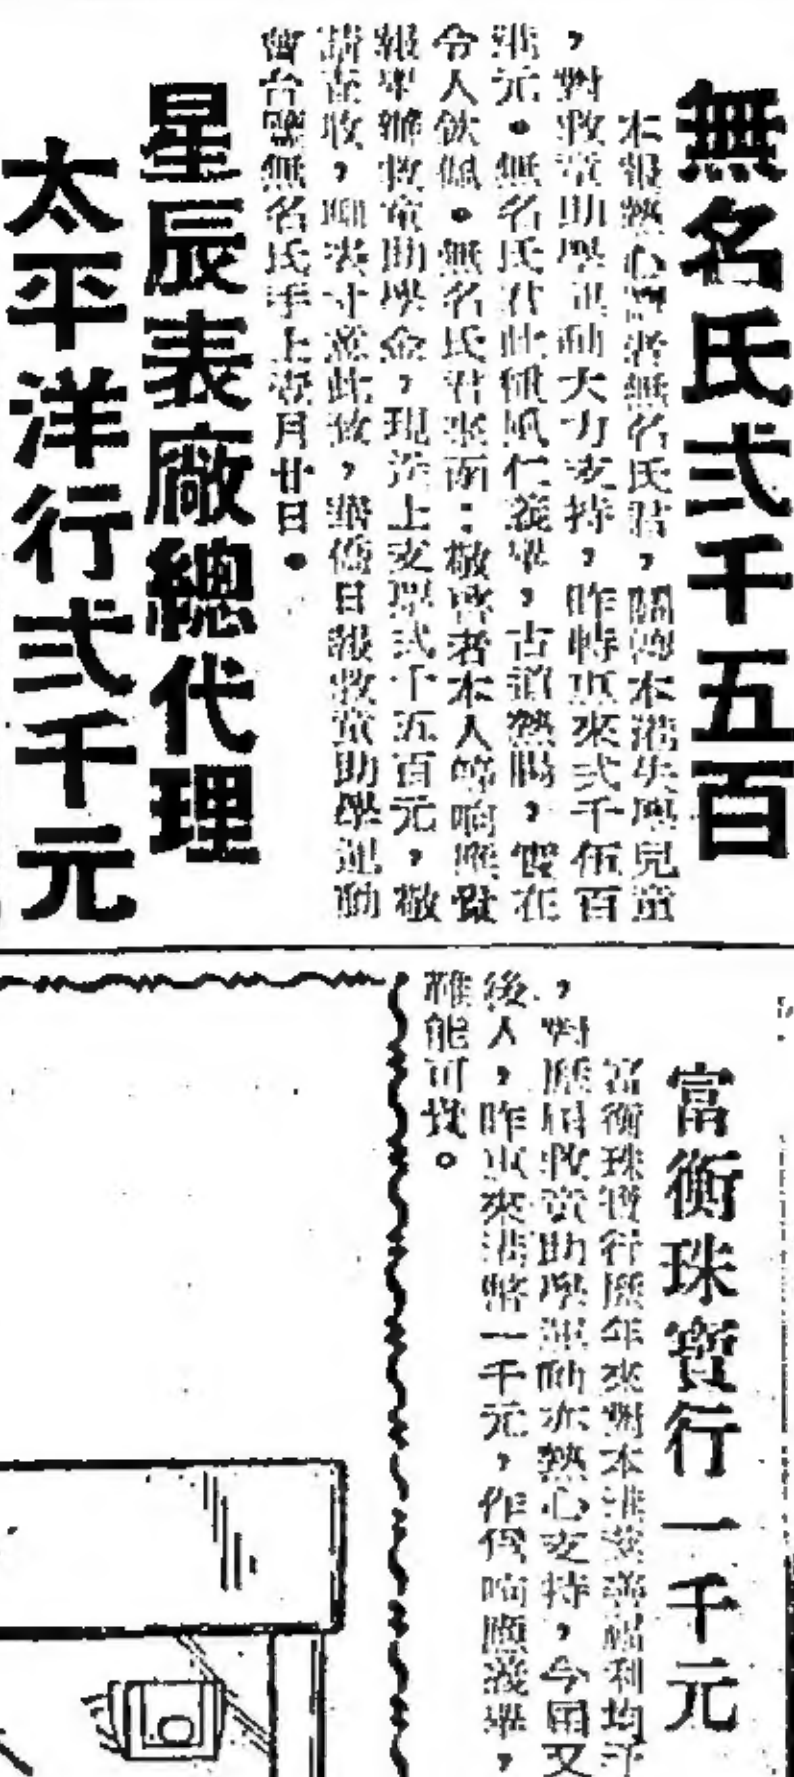 無名氏弍千五百
本報熱心讀者無名氏君，關懷本港失學兒童
，對救童助學運動大力支持，昨特惠來弍千伍百
港元。無名氏君此種風仁義舉，古道熱腸，實在
令人欽佩。無名氏君來函：敬啓者本人響應貴
報舉辦救童助學金，現送上支票弍千五百元，敬
請查收，耑此致，華僑日報救童助學運動
會台鑒無名氏手上壹月廿日。
星辰表廠總代理
太平洋行弍千元
富衡珠寶行一千元
富衡珠寶行歷年來對本港慈善福利均予
，對歷屆救童助學運動亦熱心支持，今屆又
後人，昨惠來港幣一千元，作為响應義舉，
難能可貴。